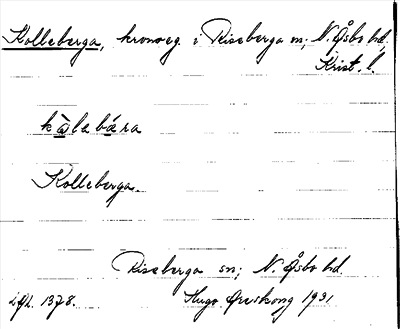 Kolleberga, kronoeg. i Riseberga sn, N. Åsbo hd,
Krist. l.
kåla bæra
Kolleberga.
Riseberga sn; N. Åsbo hd.
1378. Hugo Areskoug 1931